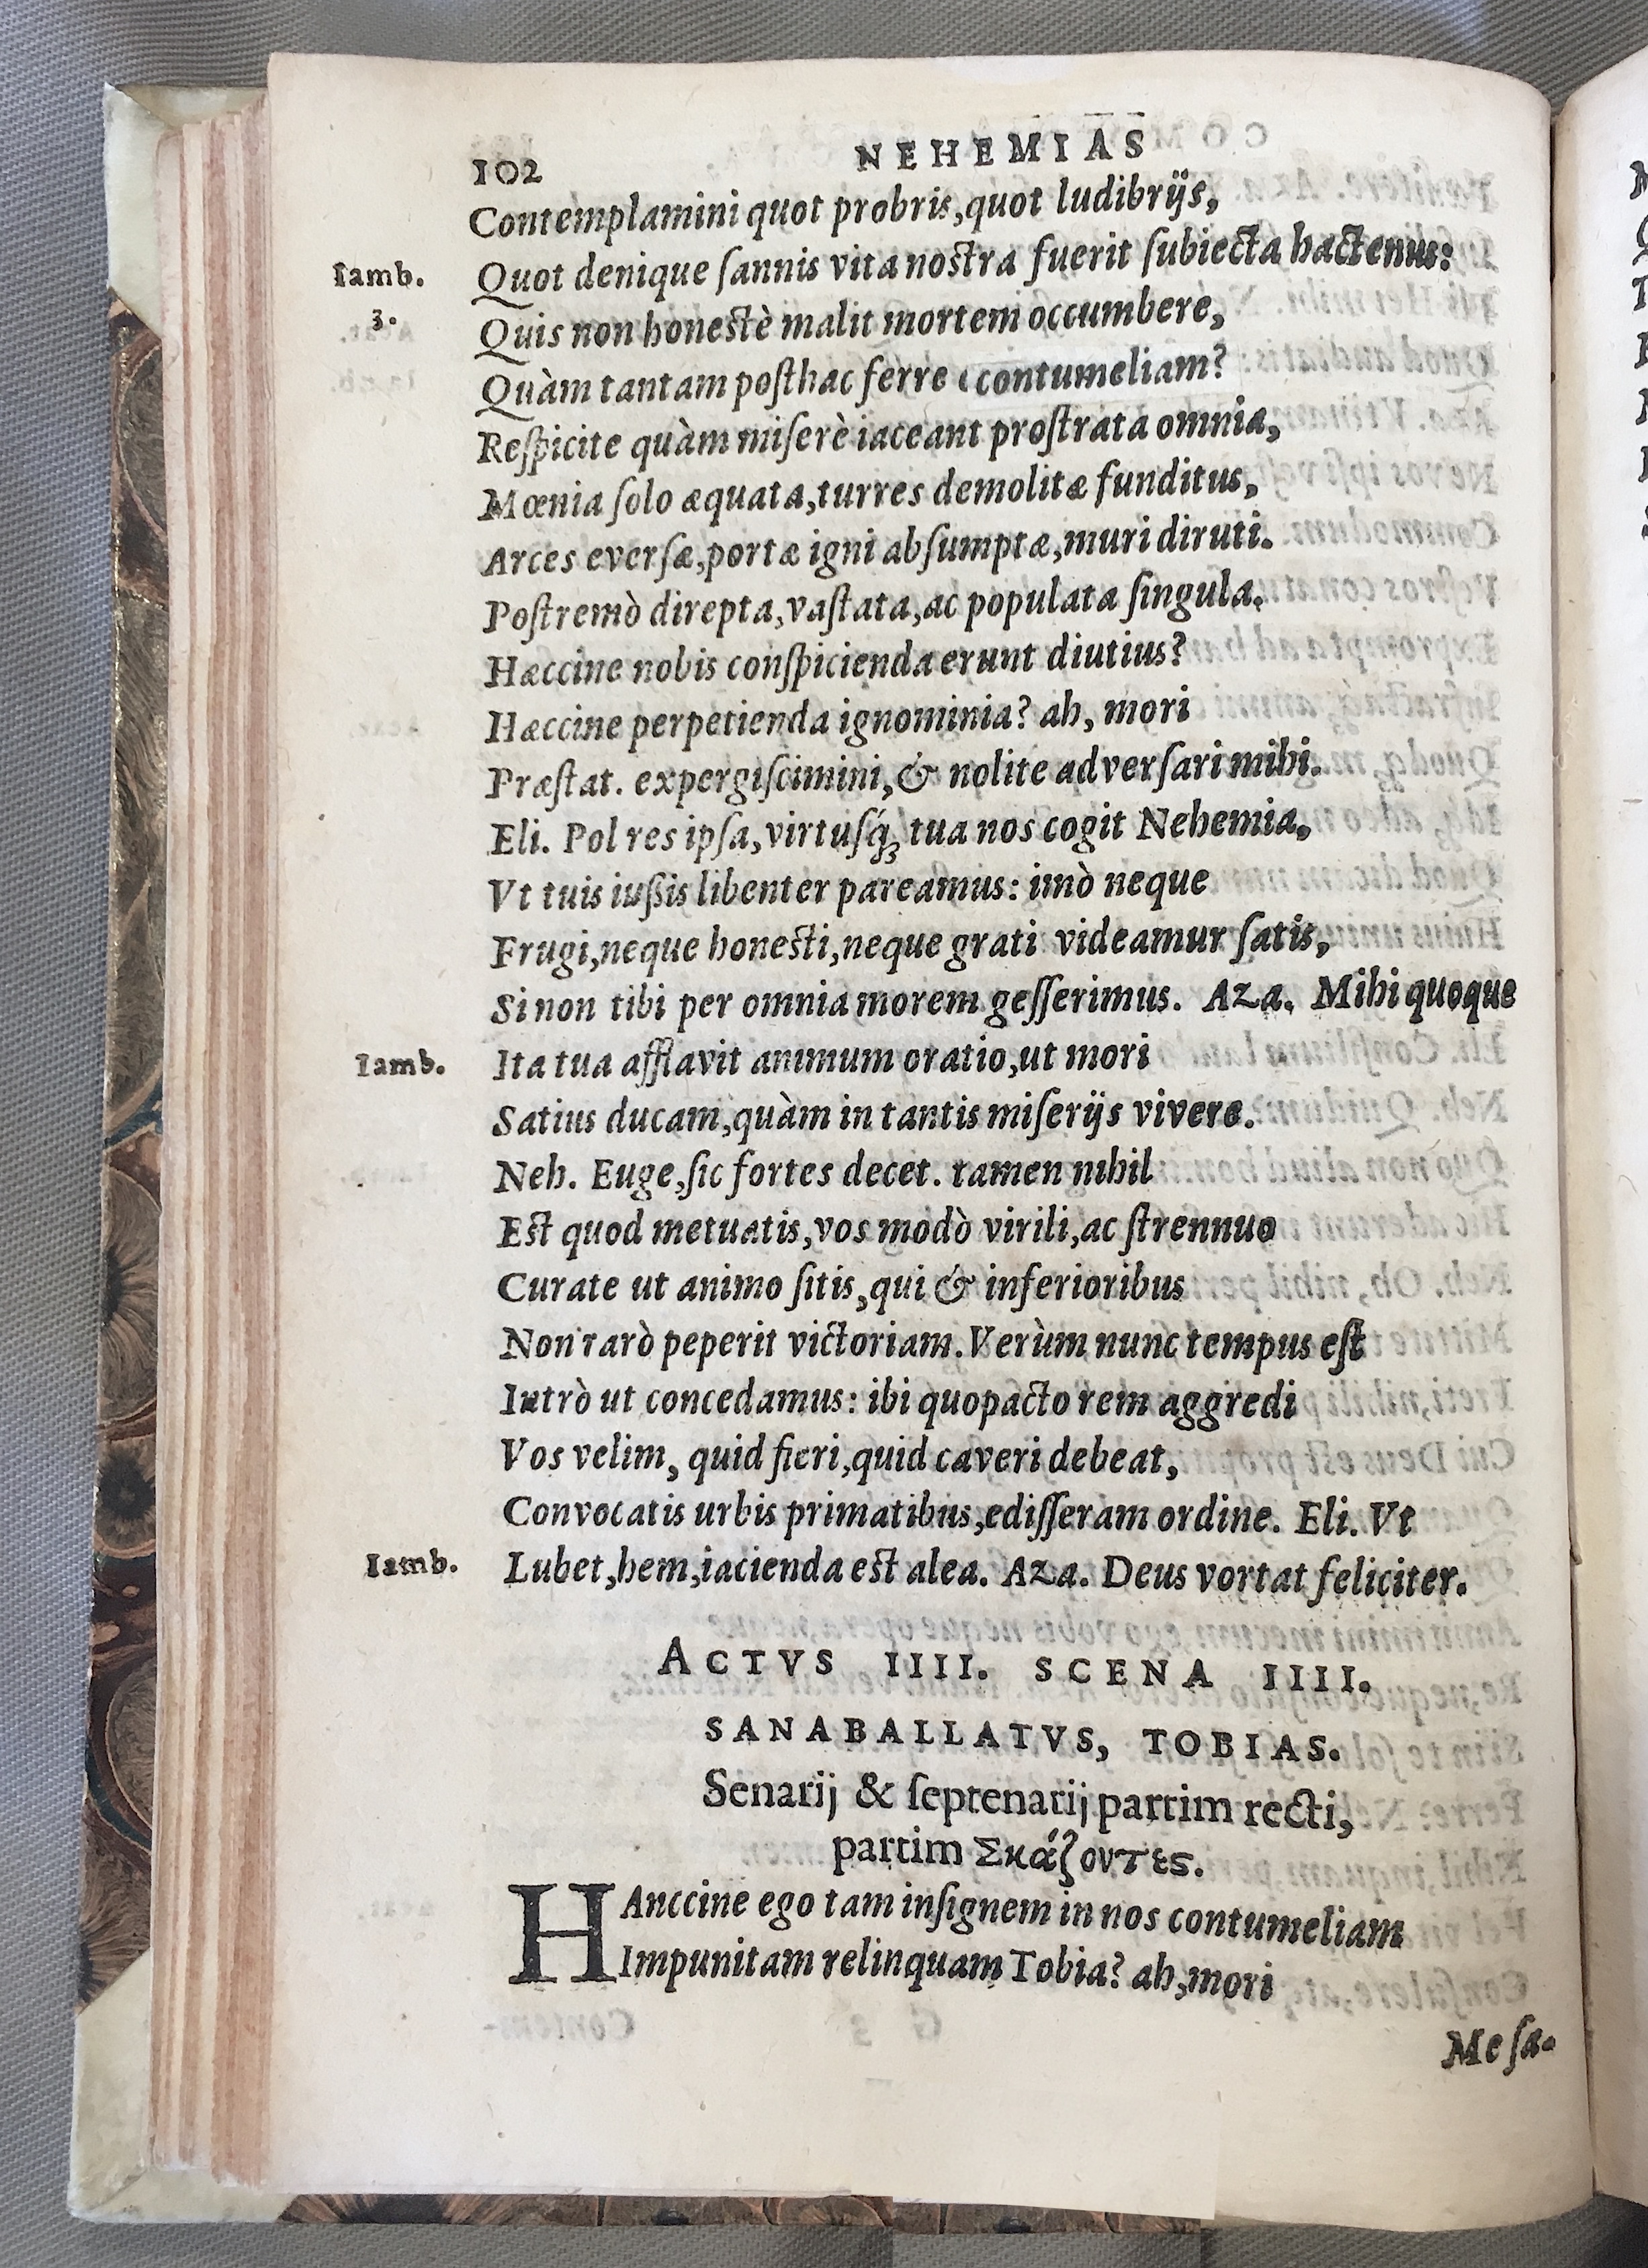 102 NEHEMIAS
Contemplamini quot probris, quot ludibrijs,
Iamb. Quot denique ſannis vita noſtra fuerit ſubiecta hactenus:
3. Quis non honeſtè malit mortem occumbere,
Quàm tantam poſthac ferre contumeliam?
Reſpicite quàm miſerè iaceant proſtrata omnia,
Mœnia ſolo æquata, turres demolitæ funditus,
Arces everſæ, portæ igni abſumptæ, muri diruti.
Poſtremò direpta, vaſtata, ac populata ſingula.
Hæccine nobis conſpicienda erunt diutius?
Hæccine perpetienda ignominia? ah, mori
Præſtat. expergiſcimini, & nolite adverſari mihi.
Eli. Pol res ipſa, virtuſq́ꝫ tua nos cogit Nehemia,
Vt tuis iußis libenter pareamus: imò neque
Frugi, neque honeſti, neque grati videamur ſatis,
Si non tibi per omnia morem geſſerimus. Aza. Mihi quoque
Iamb. Ita tua afflavit animum oratio, ut mori
Satius ducam, quàm in tantis miſerijs vivere.
Neh. Euge, ſic fortes decet. tamen nihil
Eſt quod metuatis, vos modò virili, ac ſtrennuo
Curate ut animo ſitis, qui & inferioribus
Non rarò peperit victoriam. Verùm nunc tempus eſt
Intrò ut concedamus: ibi quopacto rem aggredi
Vos velim, quid fieri, quid caveri debeat,
Convocatis urbis primatibus, ediſſeram ordine. Eli. Vt
Iamb. Lubet, hem, iacienda eſt alea. Aza. Deus vortat feliciter.
ACTVS IIII. SCENA IIII.
SANABALLATVS, TOBIAS.
Senarij & ſeptenarij partim recti,
partim Σκάζοντες.
HAnccine ego tam inſignem in nos contumeliam
Impunitam relinquam Tobia? ah, mori
Me ſa-